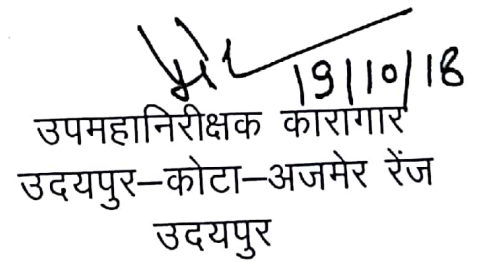 19/10/18
उपमहानिरीक्षक कारागार
उदयपुर–कोटा–अजमेर रेंज
उदयपुर